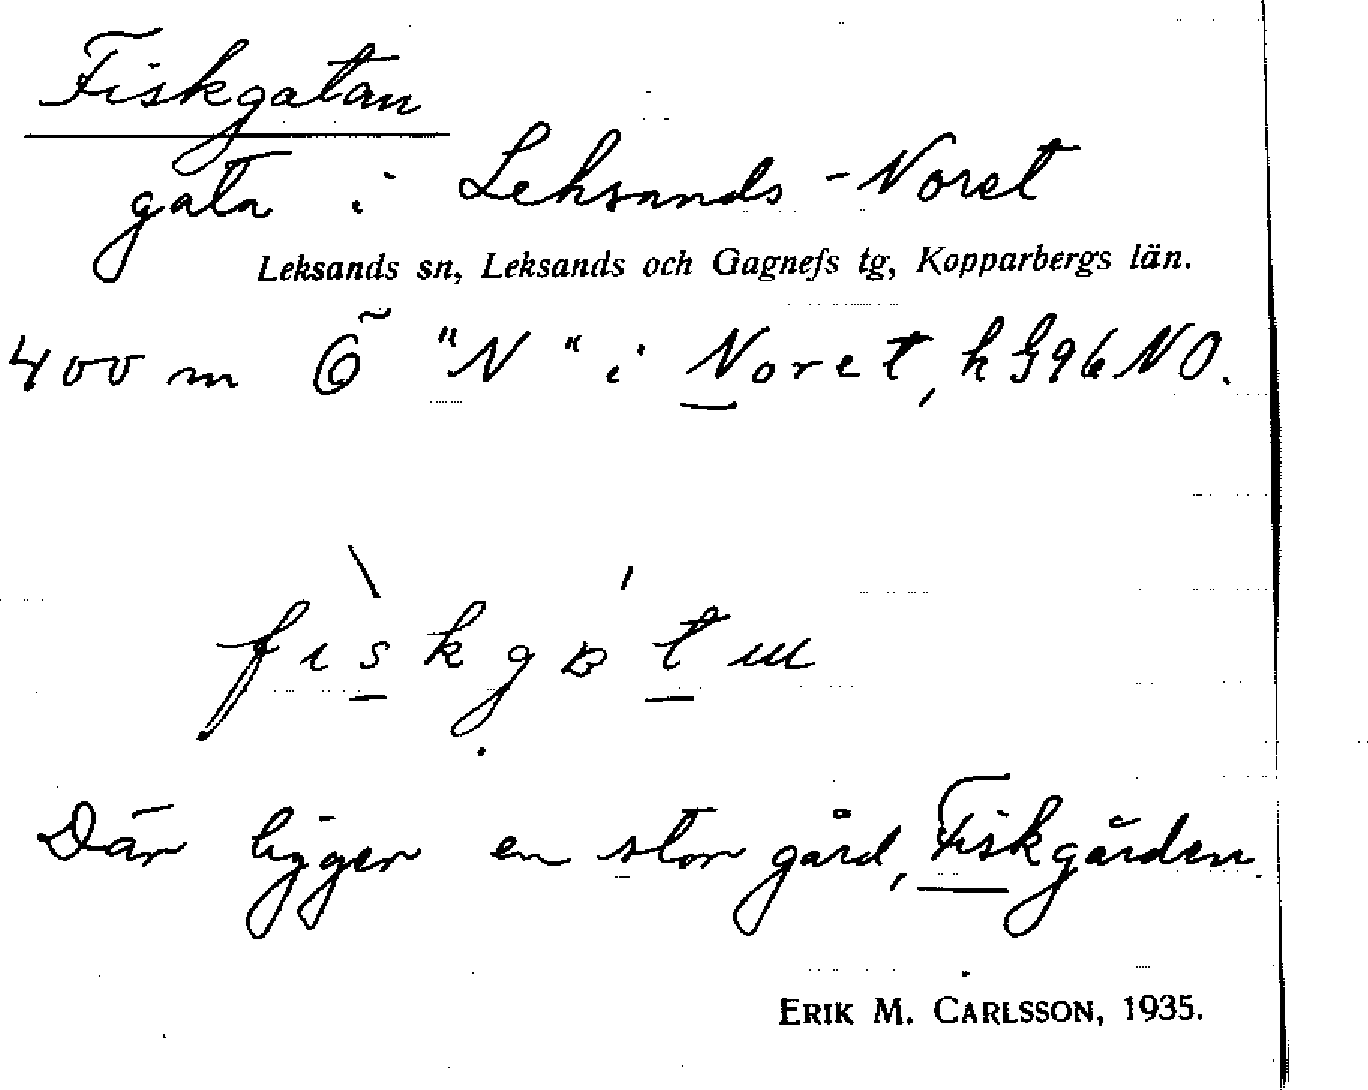 Fiskgatan
gata i Leksands-Noret
Leksands sn, Leksands och Gagnefs tg, Kopparbergs län.
400 m Ö "N" i Noret, h G96 NO.
Där ligger en stor gård, Fiskgården.
ERIK M. CARLSSON, 1935.